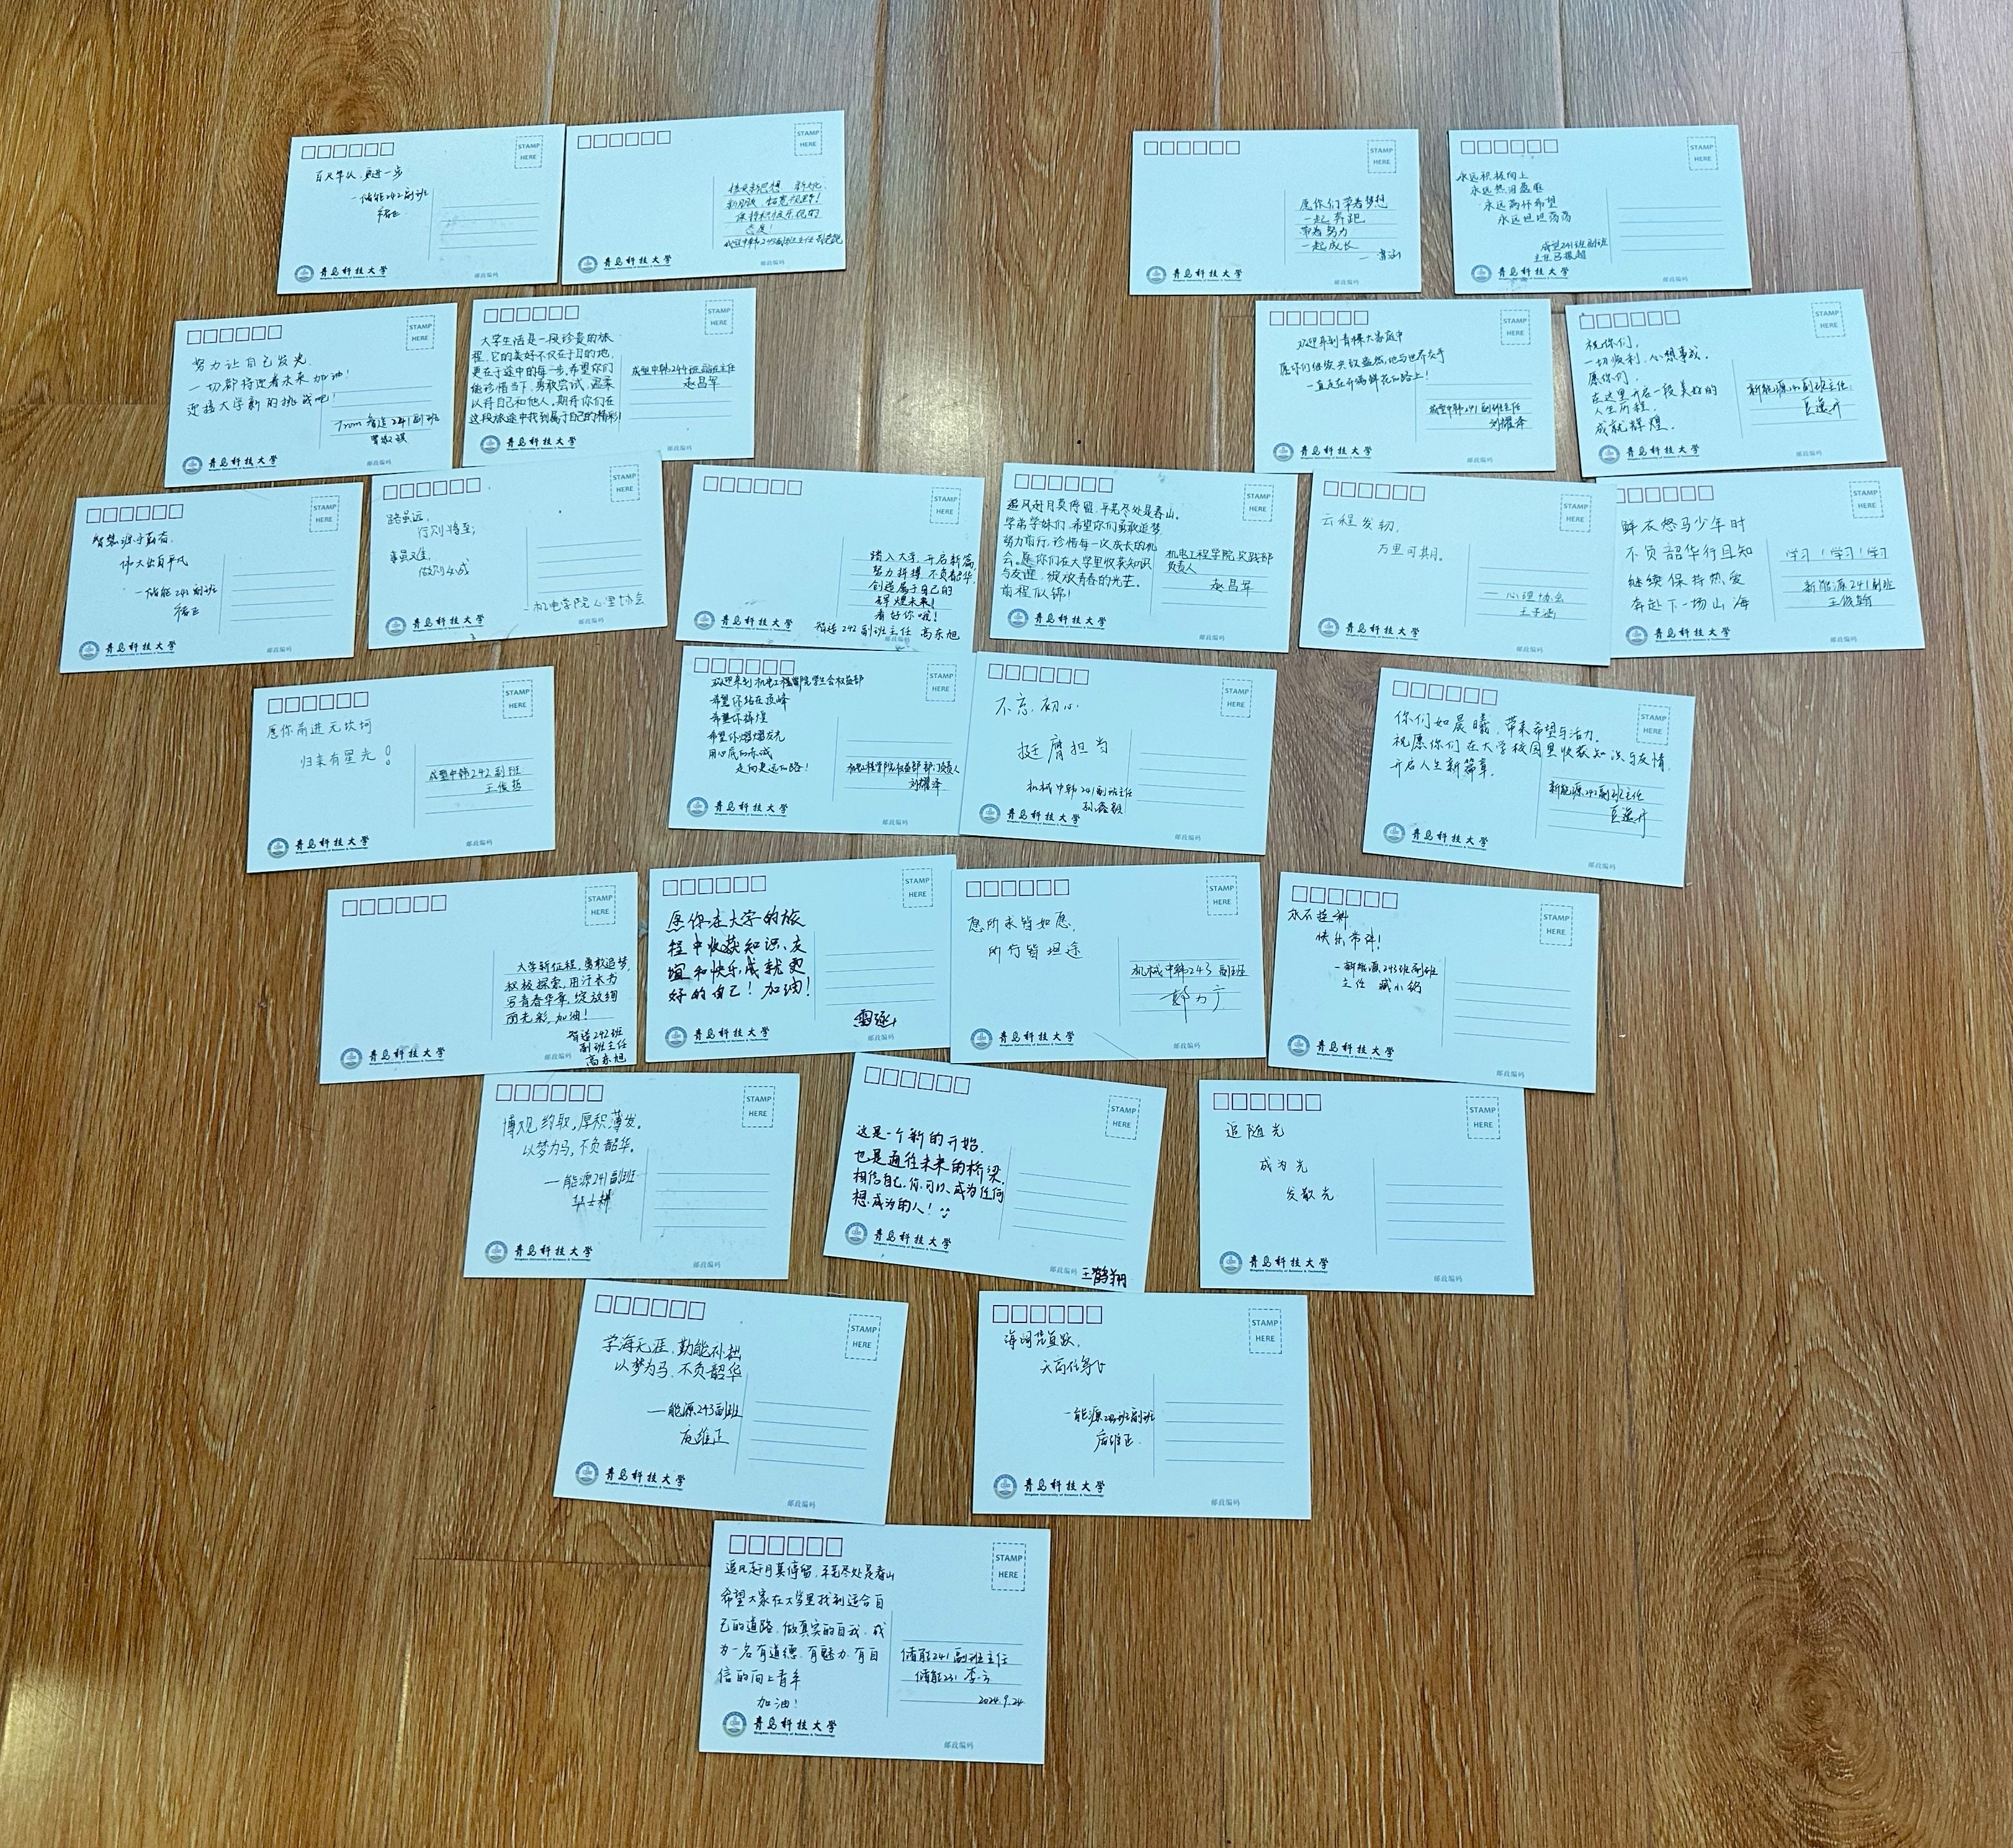 STAMP
HERE
百尺竿头,更进一步
一储能242副班
青岛科技大学
Qingdao University of Science & Technology
邮政编码
STAMP
HERE
保持积极乐观的
态度!
青岛科技大学
Qingdao University of Science & Technology
邮政编码
STAMP
HERE
愿你们带着梦想
一起奔跑
带着努力
一起成长
青岛科技大学
Qingdao University of Science & Technology
邮政编码
STAMP
HERE
永远积极向上
永远热泪盈眶
永远满怀希望
永远坦坦荡荡
成型241班副班
主任吕振超
青岛科技大学
Qingdao University of Science & Technology
STAMP
HERE
努力让自己发光,
一切都将迎着未来加油!
迎接大学新的挑战吧!
From 智造241副班
青岛科技大学
Qingdao University of Science & Technology
邮政编码
STAMP
HERE
大学生活是一段珍贵的旅
程,它的美好不仅在于目的地,
更在于途中的每一步,希望你们
能珍惜当下,勇敢尝试,温柔
以待自己和他人。期待你们在
这段旅途中找到属于自己的精彩!
成型中韩244班副班主任
赵昌军
青岛科技大学
Qingdao University of Science & Technology
邮政编码
STAMP
HERE
欢迎来到青棵大家庭中
愿你们继续兴致盎然地与世界交手
一直走在开满鲜花的路上!
成型中韩241副班主任
刘耀泽
青岛科技大学
Qingdao University of Science & Technology
邮政编码
STAMP
HERE
祝你们,
一切顺利,心想事成。
愿你们,
在这里开启一段美好的
人生历程,
成就辉煌。
新能源242副班主任:
青岛科技大学
Qingdao University of Science & Technology
邮政编码
STAMP
HERE
智慧源于勤奋,
伟大出自平凡
一储能242副班
青岛科技大学
Qingdao University of Science & Technology
邮政编码
STAMP
HERE
路虽远,
行则将至;
事虽难,
做则必成
一机电学院心理协会
青岛科技大学
Qingdao University of Science & Technology
邮政编码
STAMP
HERE
踏入大学,开启新篇,
努力拼搏,不负韶华,
创造属于自己的
辉煌未来!
看好你哦!
智造242副班主任 高东旭
青岛科技大学
Qingdao University of Science & Technology
邮政编码
STAMP
HERE
追风赶月莫停留,平芜尽处是春山。
学弟学妹们,希望你们勇敢追梦,
努力前行,珍惜每一次成长的机
会。愿你们在大学里收获知识
与友谊,绽放青春的光芒。
前程似锦!
机电工程学院实践部
负责人
赵昌军
青岛科技大学
Qingdao University of Science & Technology
邮政编码
STAMP
HERE
云程发轫,
万里可期。
——心理协会
王子涵
青岛科技大学
Qingdao University of Science & Technology
邮政编码
STAMP
HERE
鲜衣怒马少年时
不负韶华行且知
继续保持热爱
奔赴下一场山海
学习!学习!学习
新能源241副班
王俊翰
青岛科技大学
Qingdao University of Science & Technology
邮政编码
STAMP
HERE
愿你前进无坎坷
归来有星光!
成型中韩242副班
王俊哲
青岛科技大学
Qingdao University of Science & Technology
邮政编码
STAMP
HERE
欢迎来到机电工程学院学生会权益部
希望你站在顶峰
希望你辉煌
希望你熠熠发光
用心底的赤诚
走向更远的路!
机电工程学院权益部部门负责人
刘耀泽
青岛科技大学
Qingdao University of Science & Technology
邮政编码
STAMP
HERE
不忘初心
挺膺担当
机械中韩241副班主任
孙鑫毅
青岛科技大学
Qingdao University of Science & Technology
邮政编码
STAMP
HERE
你们如晨曦,带来希望与活力。
祝愿你们在大学校园里收获知识与友情,
开启人生新篇章。
新能源242副班主任
青岛科技大学
Qingdao University of Science & Technology
邮政编码
STAMP
HERE
大学新征程,勇敢追梦,
积极探索,用汗水书
写青春华章,绽放绚
丽光彩,加油!
智造242班
副班主任
高东旭
青岛科技大学
Qingdao University of Science & Technology
邮政编码
STAMP
HERE
愿你在大学的旅
程中收获知识、友
谊和快乐,成就更
好的自己!加油!
青岛科技大学
Qingdao University of Science & Technology
邮政编码
STAMP
HERE
愿所求皆如愿,
所行皆坦途
机械中韩243副班
青岛科技大学
Qingdao University of Science & Technology
邮政编码
STAMP
HERE
永不挂科
快乐常伴!
一新能源243班副班
主任 臧小钢
青岛科技大学
Qingdao University of Science & Technology
邮政编码
STAMP
HERE
博观约取,厚积薄发。
以梦为马,不负韶华。
——能源241副班
青岛科技大学
Qingdao University of Science & Technology
邮政编码
STAMP
HERE
这是一个新的开始,
也是通往未来的桥梁,
相信自己,你可以成为任何
想成为的人!
王鹤翔
青岛科技大学
Qingdao University of Science & Technology
邮政编码
STAMP
HERE
追随光
成为光
发散光
青岛科技大学
Qingdao University of Science & Technology
邮政编码
STAMP
HERE
学海无涯,勤能补拙
以梦为马,不负韶华
——能源243副班
庞维正
青岛科技大学
Qingdao University of Science & Technology
邮政编码
STAMP
HERE
海阔凭鱼跃,
天高任鸟飞
一能源243班副班
庞维正
青岛科技大学
Qingdao University of Science & Technology
邮政编码
STAMP
HERE
追风赶月莫停留,平芜尽处是春山
希望大家在大学里找到适合自
己的道路,做真实的自我,成
为一名有道德、有魅力、有自
信的向上青年
加油!
储能241副班主任
储能231 李方
2024.9.24
青岛科技大学
Qingdao University of Science & Technology
邮政编码